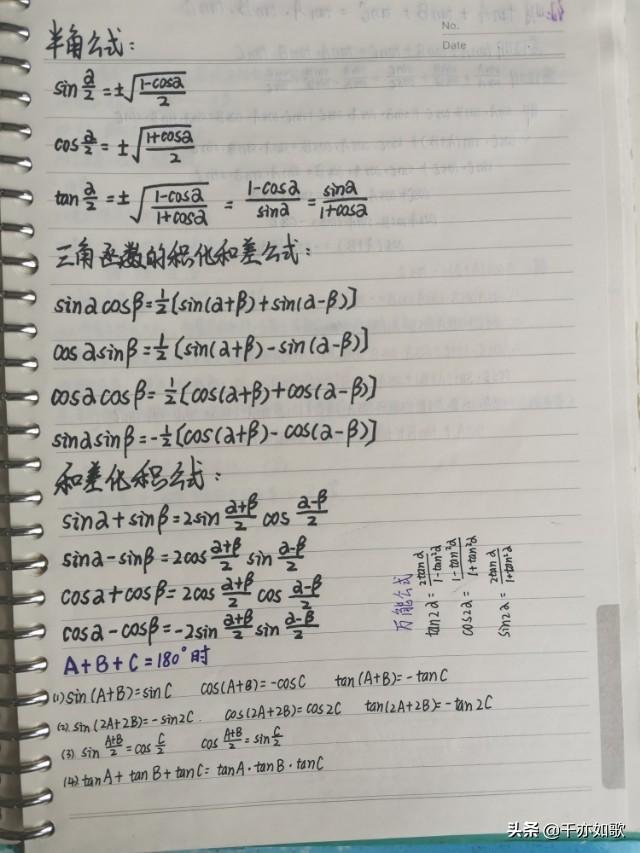 No.
Date
半角公式:
sin α/2 = ±√((1-cosα)/2)
cos α/2 = ±√((1+cosα)/2)
tan α/2 = ±√((1-cosα)/(1+cosα)) = (1-cosα)/sinα = sinα/(1+cosα)
三角函数的积化和差公式:
sinαcosβ=½[sin(α+β)+sin(α-β)]
cosαsinβ=½[sin(α+β)-sin(α-β)]
cosαcosβ=½[cos(α+β)+cos(α-β)]
sinαsinβ=-½[cos(α+β)-cos(α-β)]
和差化积公式:
sinα+sinβ=2sin (α+β)/2 cos (α-β)/2
sinα-sinβ=2cos (α+β)/2 sin (α-β)/2
cosα+cosβ=2cos (α+β)/2 cos (α-β)/2
cosα-cosβ=-2sin (α+β)/2 sin (α-β)/2
万能公式
tan2α = 2tanα/(1-tan²α)
cos2α = (1-tan²α)/(1+tan²α)
sin2α = 2tanα/(1+tan²α)
A+B+C=180°时
(1) sin(A+B)=sinC cos(A+B)=-cosC tan(A+B)=-tanC
(2) sin(2A+2B)=-sin2C. cos(2A+2B)=cos2C tan(2A+2B)=-tan2C
(3) sin (A+B)/2 = cos C/2 cos (A+B)/2 = sin C/2
(4) tanA+tanB+tanC=tanA·tanB·tanC
头条 @千亦如歌